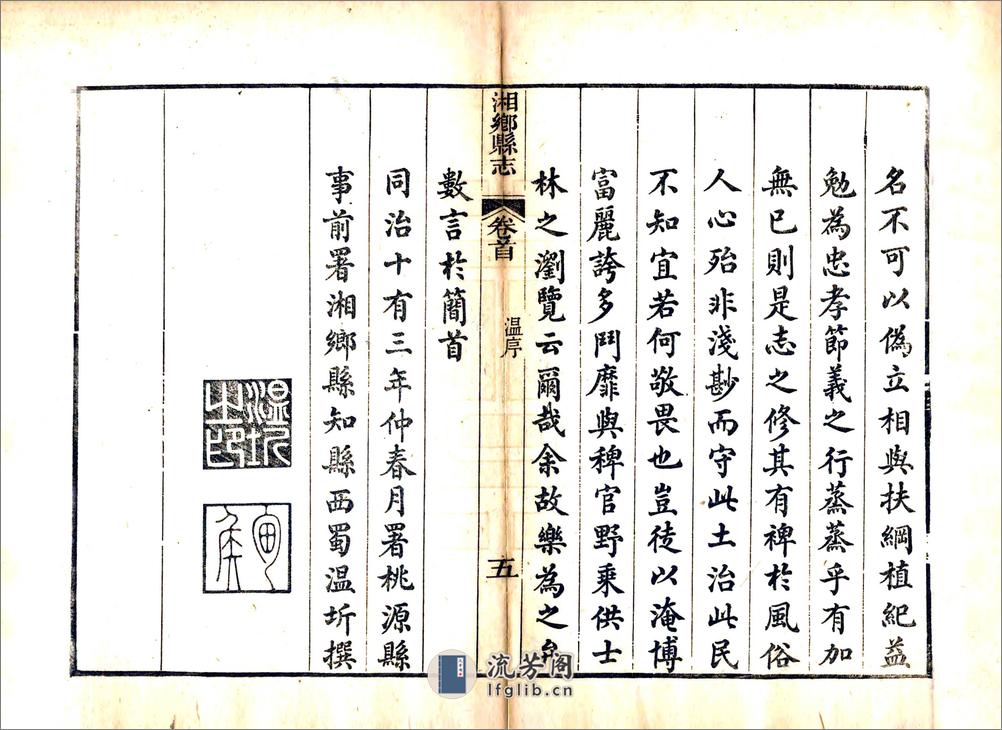 名不可以偽立相與扶綱植紀益
勉為忠孝節義之行蒸蒸乎有加
無已則是志之修其有裨於風俗
人心殆非淺尠而守此土治此民
不知宜若何敬畏也豈徒以淹博
富麗誇多鬥靡與稗官野乘供士
林之瀏覽云爾哉余故樂為之弁
數言於簡首
同治十有三年仲春月署桃源縣
事前署湘鄉縣知縣西蜀温圻撰
湘鄉縣志
卷首
温序
五
温圻之印
流芳阁
lfglib.cn